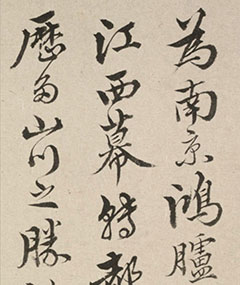 為南京鴻臚
江西幕轉都
歷山川之勝